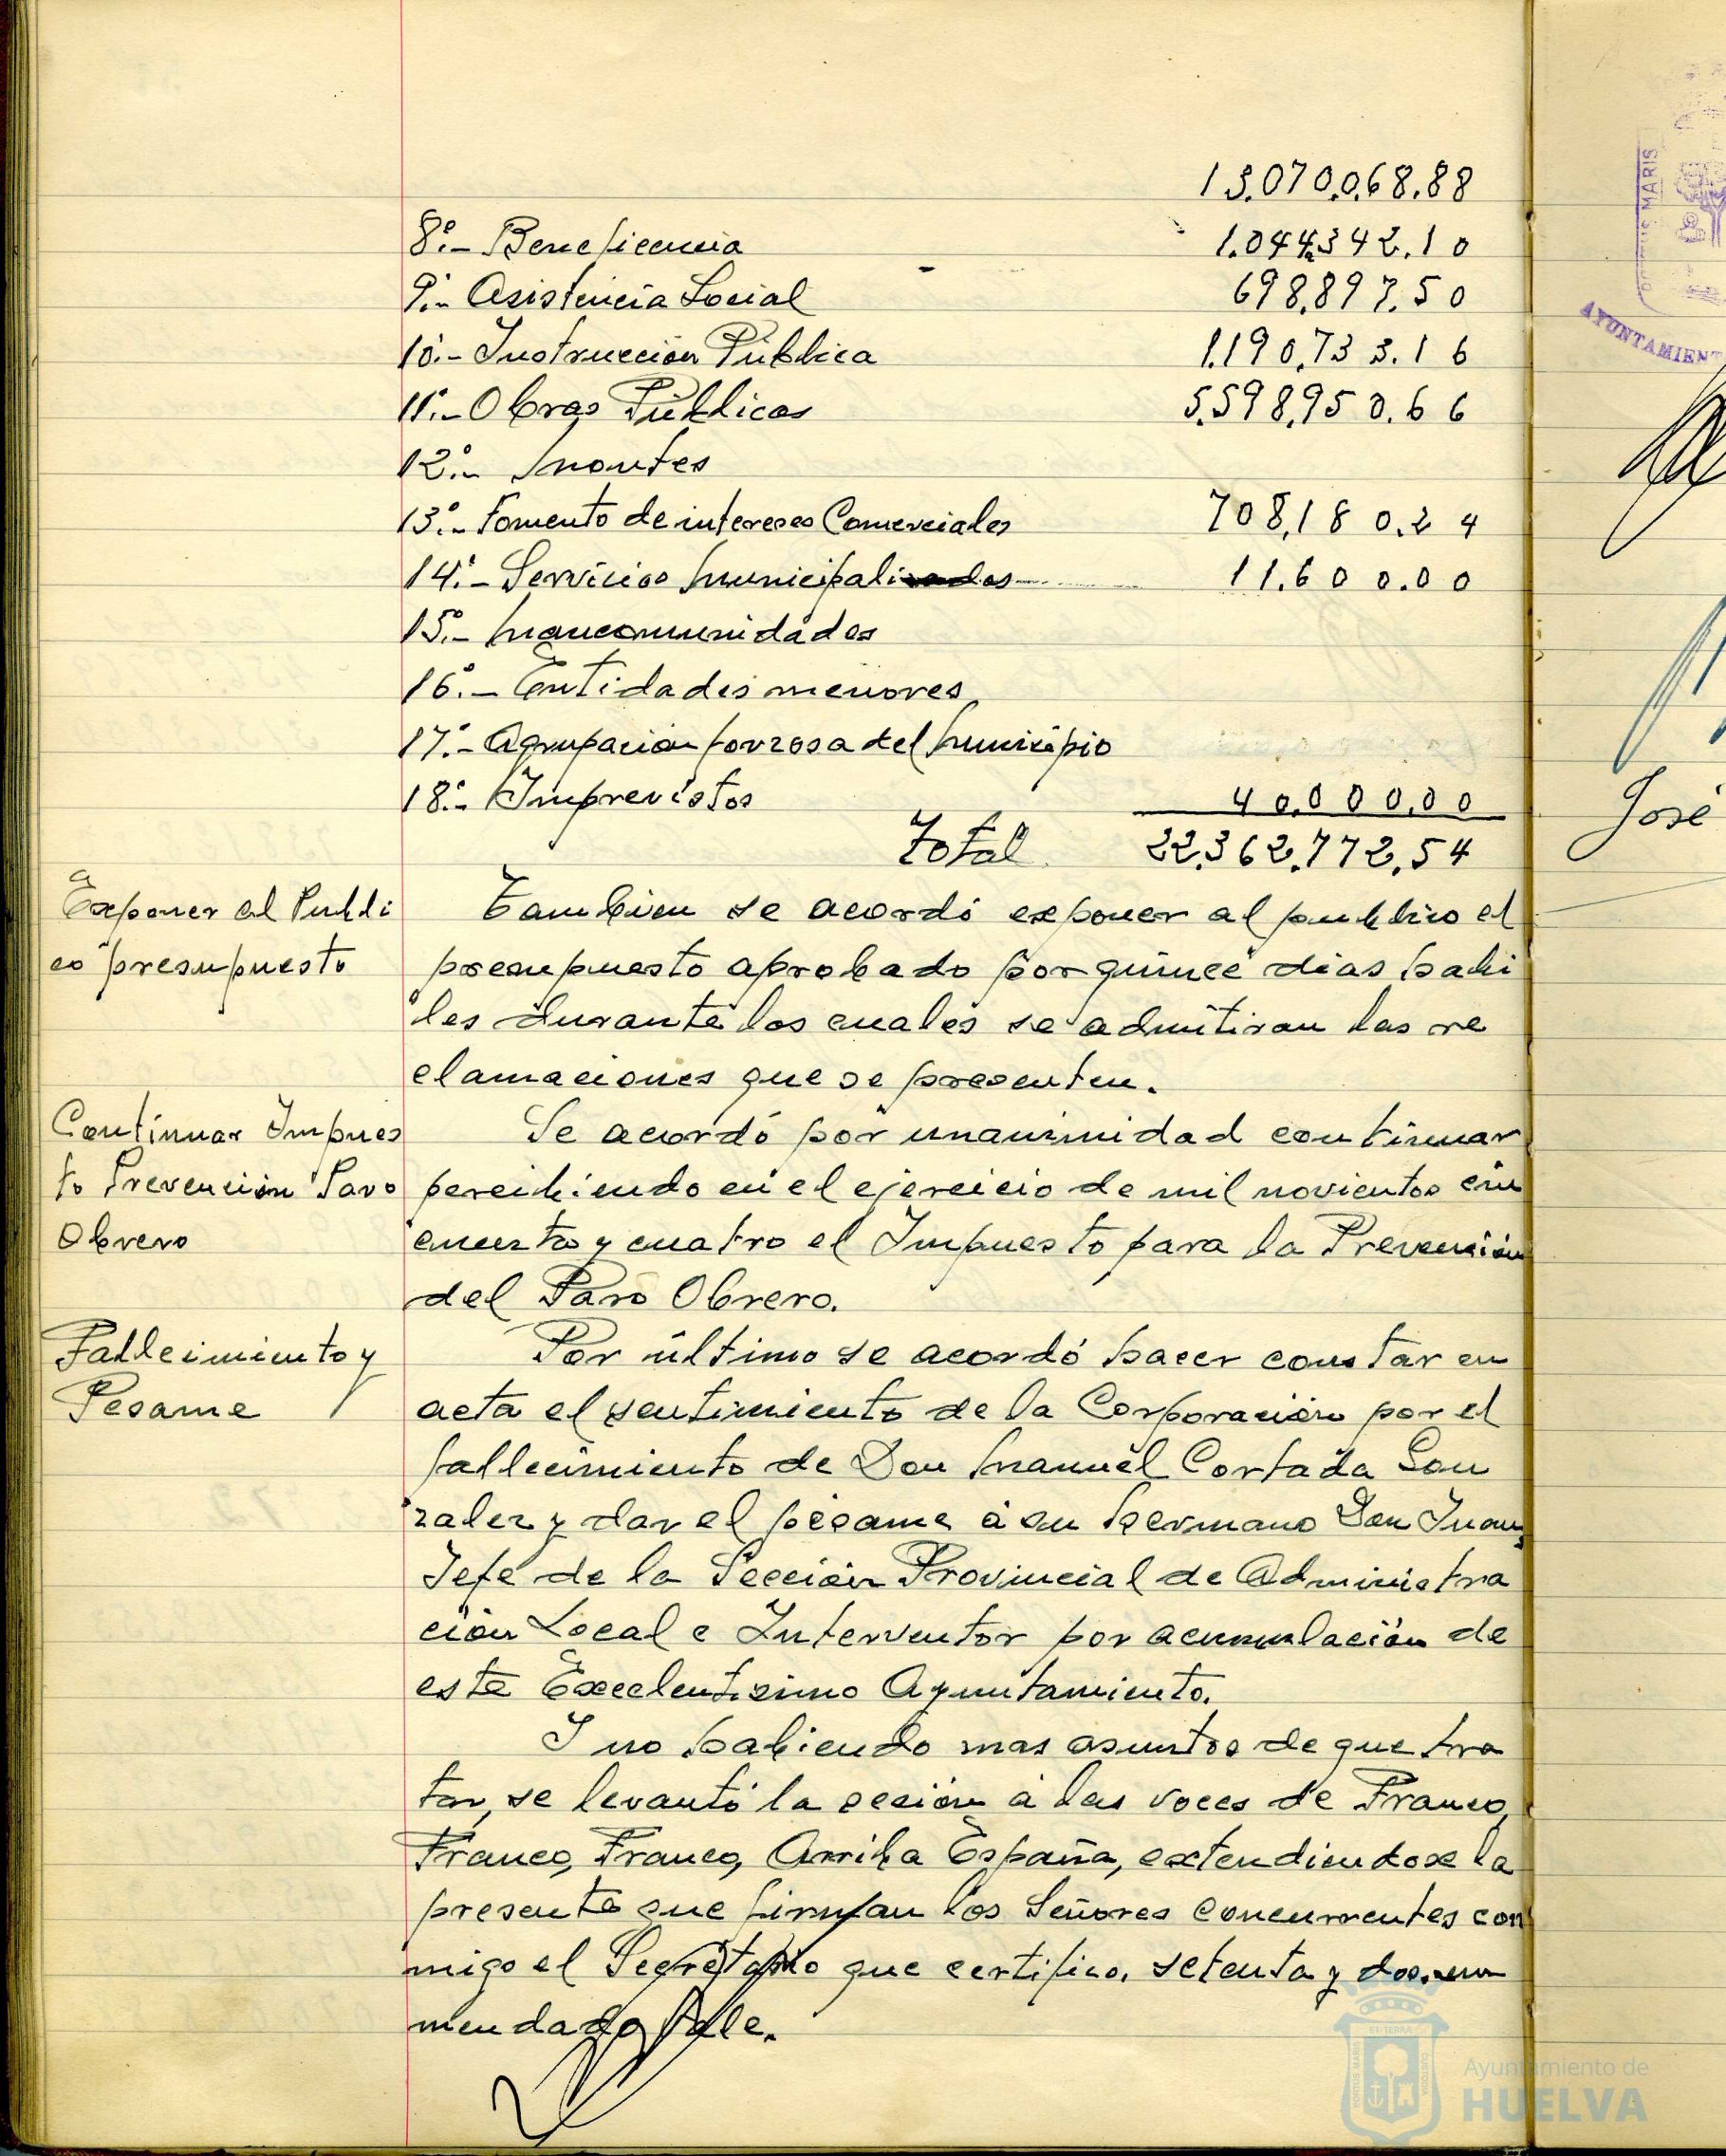 13.070.068.88
8º.- Beneficencia 1.044.342.10
9º.- Asistencia Social 698.897.50
10º.- Instrucción Pública 1.190.733.16
11º.- Obras Públicas 5.598.950.66
12º.- Montes
13º.- Fomento de intereses Comerciales 708.180.24
14º.- Servicios Municipalizados 11.600.00
15º.- Mancomunidades
16º.- Entidades menores
17º.- Agrupacion forzosa del Municipio
18º.- Imprevistos 40.000.00
Total 22.362.772.54
Exponer al Públi
co presupuesto
Tambien se acordó exponer al publico el
presupuesto aprobado por quince dias habi
les durante los cuales se admitiran las re
clamaciones que se presenten.
Continuar Impues
to Prevención Paro
Obrero
Se acordó por unanimidad continuar
percibiendo en el ejercicio de mil novientos cin
cuenta y cuatro el Impuesto para la Prevención
del Paro Obrero.
Fallecimiento y
Pesame
Por último se acordó hacer constar en
acta el sentimiento de la Corporación por el
fallecimiento de Don Manuel Cortada Gon
zalez y dar el pésame á su hermano Don Juan,
Jefe de la Sección Provincial de Administra
ción Local e Interventor por acumulación de
este Excelentisimo Ayuntamiento.
I no habiendo mas asuntos de que tra
tar, se levantó la sesión á las voces de Franco,
Franco, Franco, Arriba España, extendiendose la
presente que firman los Señores concurrentes con
migo el Secretario que certifico. setenta y dos. en
mendado Vale.
MARIS
AYUNTAMIENT
José
Ayuntamiento de
HUELVA